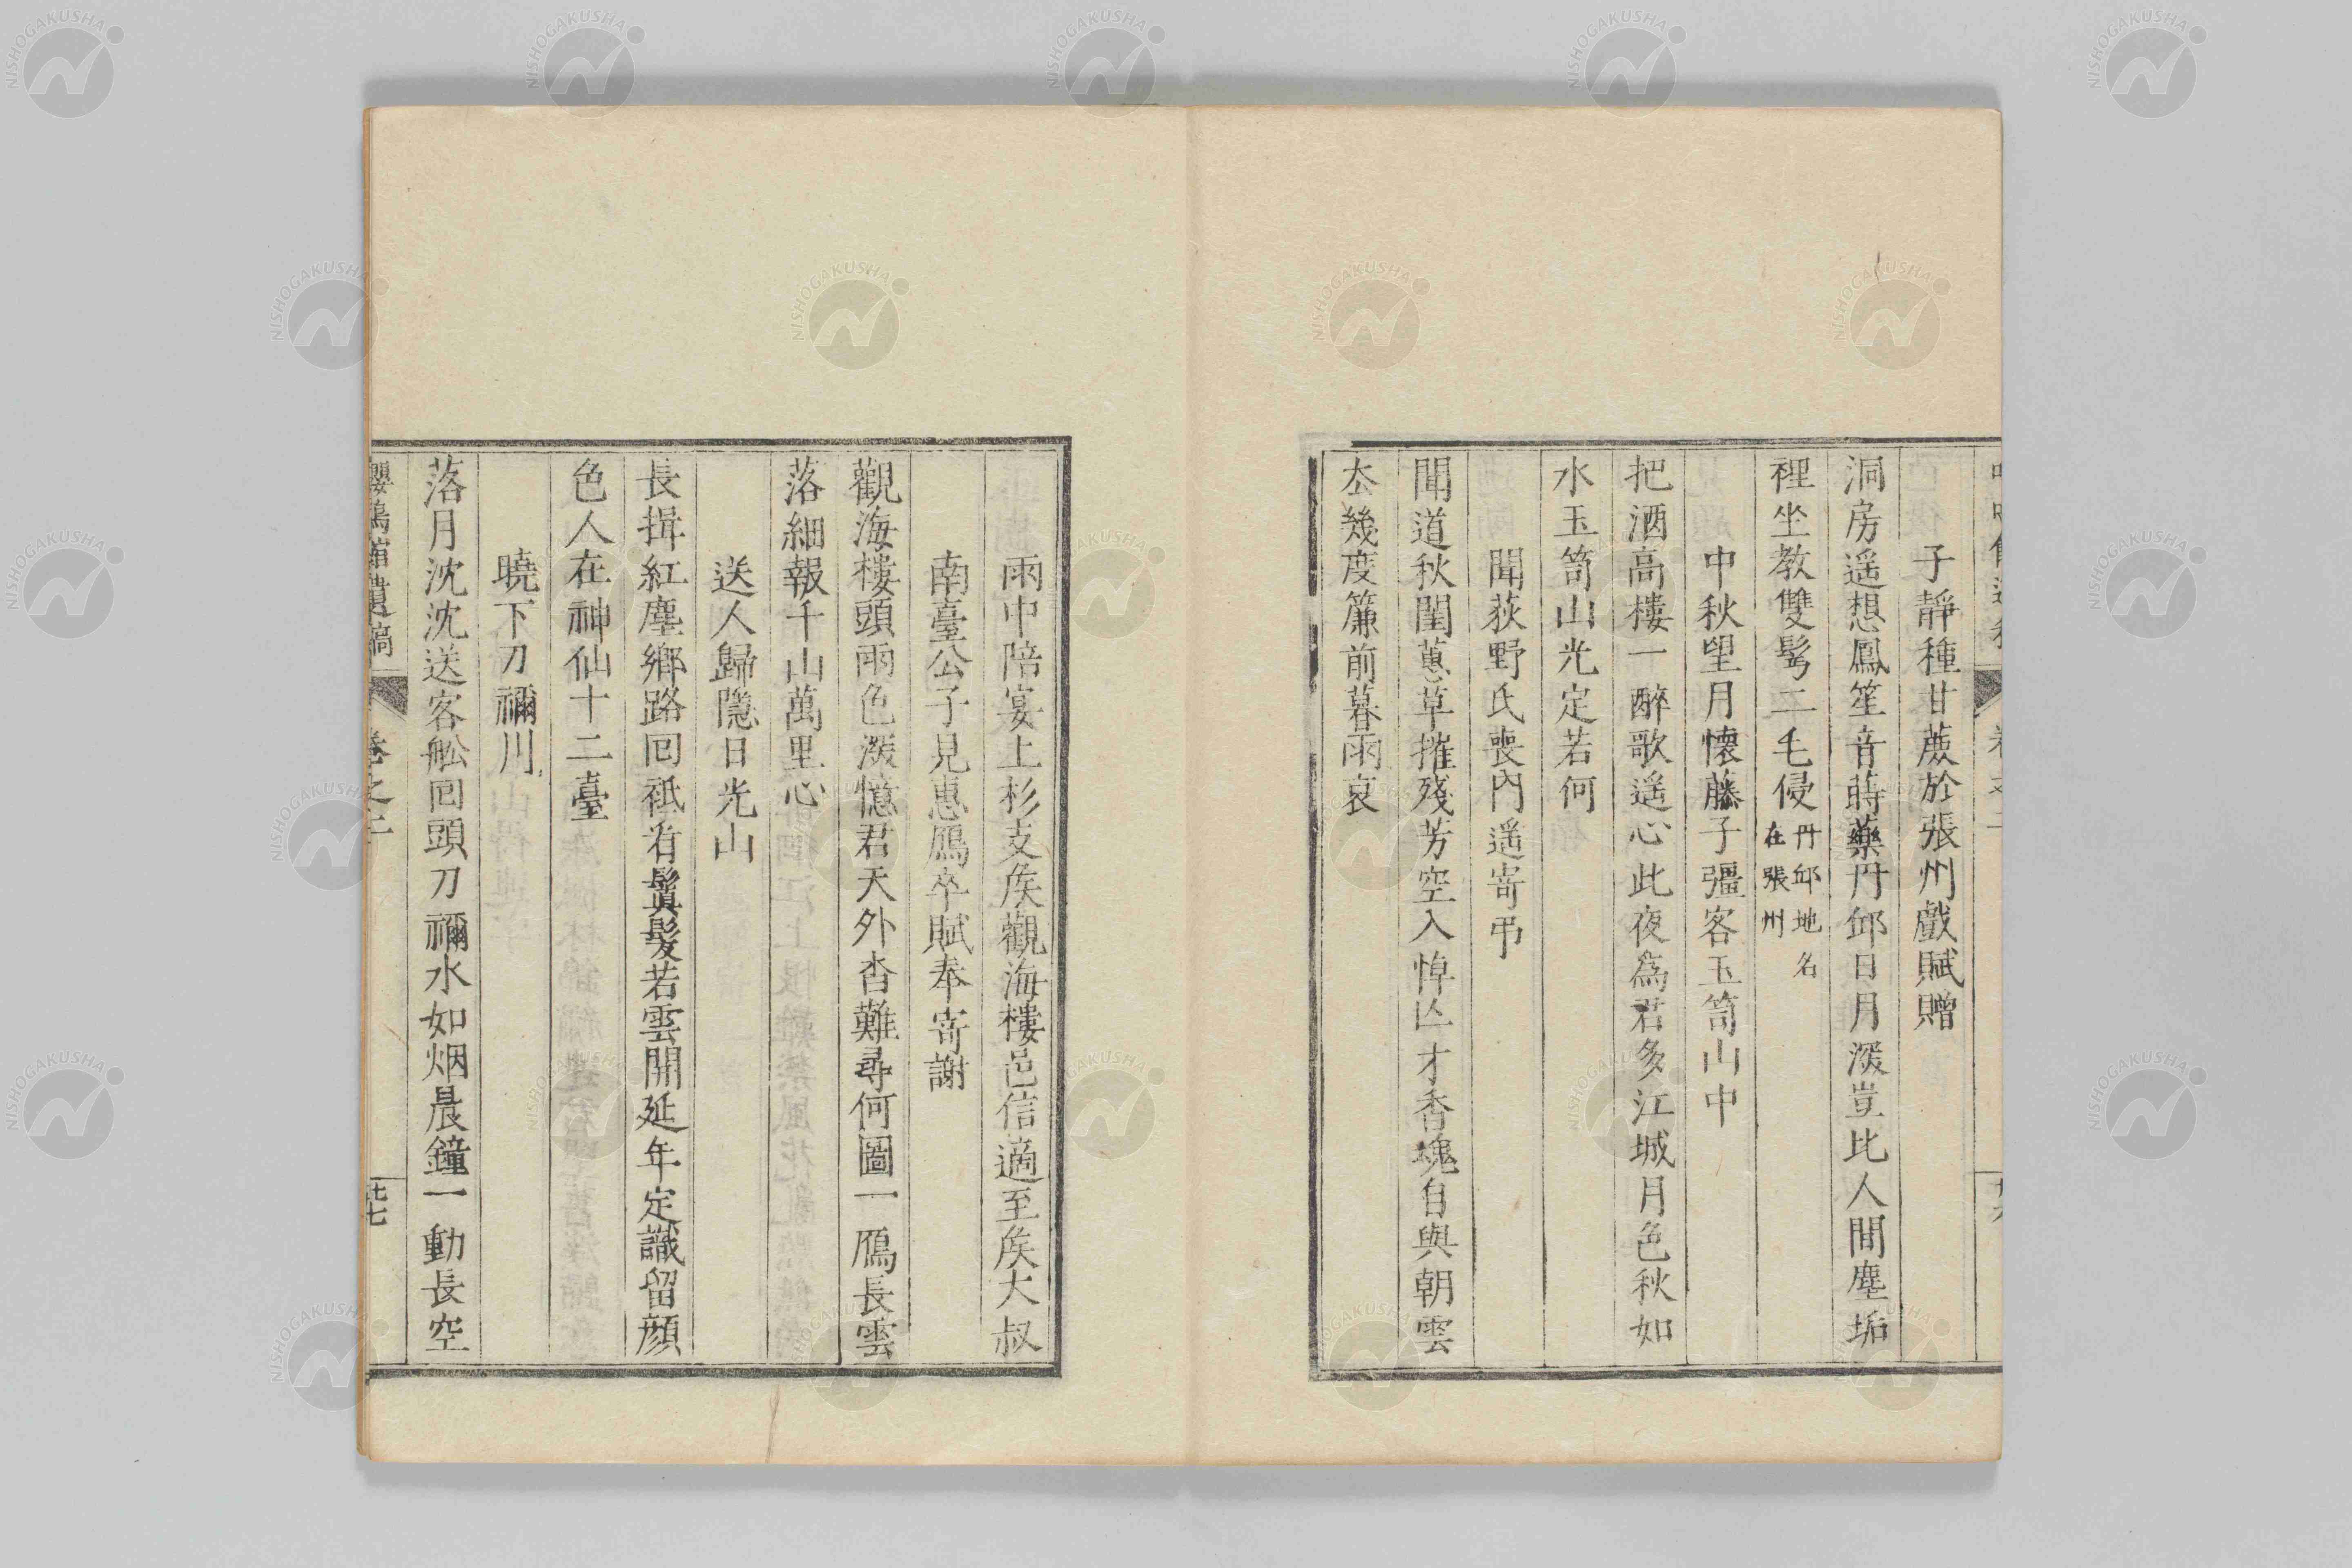 子靜種甘蔗於張州戲賦贈
洞房遥想鳳笙音蒔藥丹邱日月深豈比人間塵垢
裡坐教雙鬂二毛侵丹邱地名
在張州
中秋望月懷藤子彊客玉笥山中
把酒高樓一醉歌遥心此夜為君多江城月色秋如
水玉笥山光定若何
聞荻野氏喪內遥寄弔
聞道秋閨蕙草摧殘芳空入悼亾才香塊自與朝雲
厺幾度簾前暮雨哀
雨中陪宴上杉支矦觀海樓邑信適至矦大叔
南臺公子見惠鴈卒賦奉寄謝
觀海樓頭雨色深憶君天外杳難尋何圖一鴈長雲
落細報千山萬里心
送人歸隱日光山
長揖紅塵鄉路回祗看鬒髮若雲開延年定識留顔
色人在神仙十二臺
曉下刀禰川
落月沈沈送客舩回頭刀禰水如烟晨鐘一動長空
遺稿
卷之二
廿七
NISHOGAKUSHA